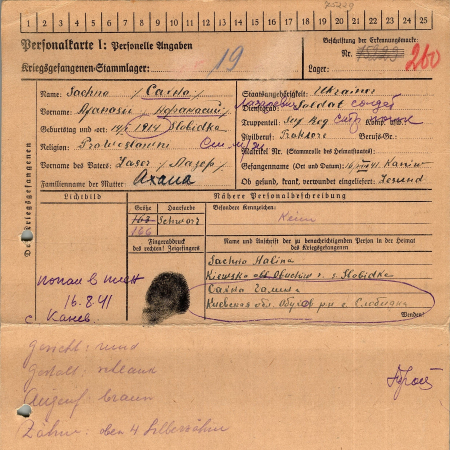 45229
1 2 3 4 5 6 7 8 9 10 11 12 13 14 15 16 17 18 19 20 21 22 23 24 25
Personalkarte I: Personelle Angaben
Beschriftung der Erkennungsmarke
Kriegsgefangenen-Stammlager: 19
Nr.
Lager: 260
Des Kriegsgefangenen
Name: Sachno / Сахно
Vorname: Afanasii / Афанасий
Geburtstag und -ort: 1914 Slobidka
Religion:
Vorname des Vaters: Laser / Лазер
Familienname der Mutter:
Staatsangehörigkeit: Ukrainer
Dienstgrad: Soldat
Truppenteil: Komp. usw.:
Zivilberuf: Berufs-Gr.:
Matrikel Nr. (Stammrolle des Heimatstaates):
Gefangennahme (Ort und Datum): 16. 41. Kaniw
Ob gesund, krank, verwundet eingeliefert: Gesund
Lichtbild
Nähere Personalbeschreibung
Größe
Haarfarbe
Besondere Kennzeichen:
166
Schwarz
Keine
Fingerabdruck
des rechten Zeigefingers
Name und Anschrift der zu benachrichtigenden Person in der Heimat
des Kriegsgefangenen
Sachno Halina
Kiewska obl. Obuchiw r. s. Slobidka
Сахно Галина
Киевская обл. Обухов р-н с. Слободка
Wenden!
попал в плен
16.8.41
Канев
Gesicht: rund
Gestalt: schlank
Augenf: braun
Zähne: oben 4 Silberzähne